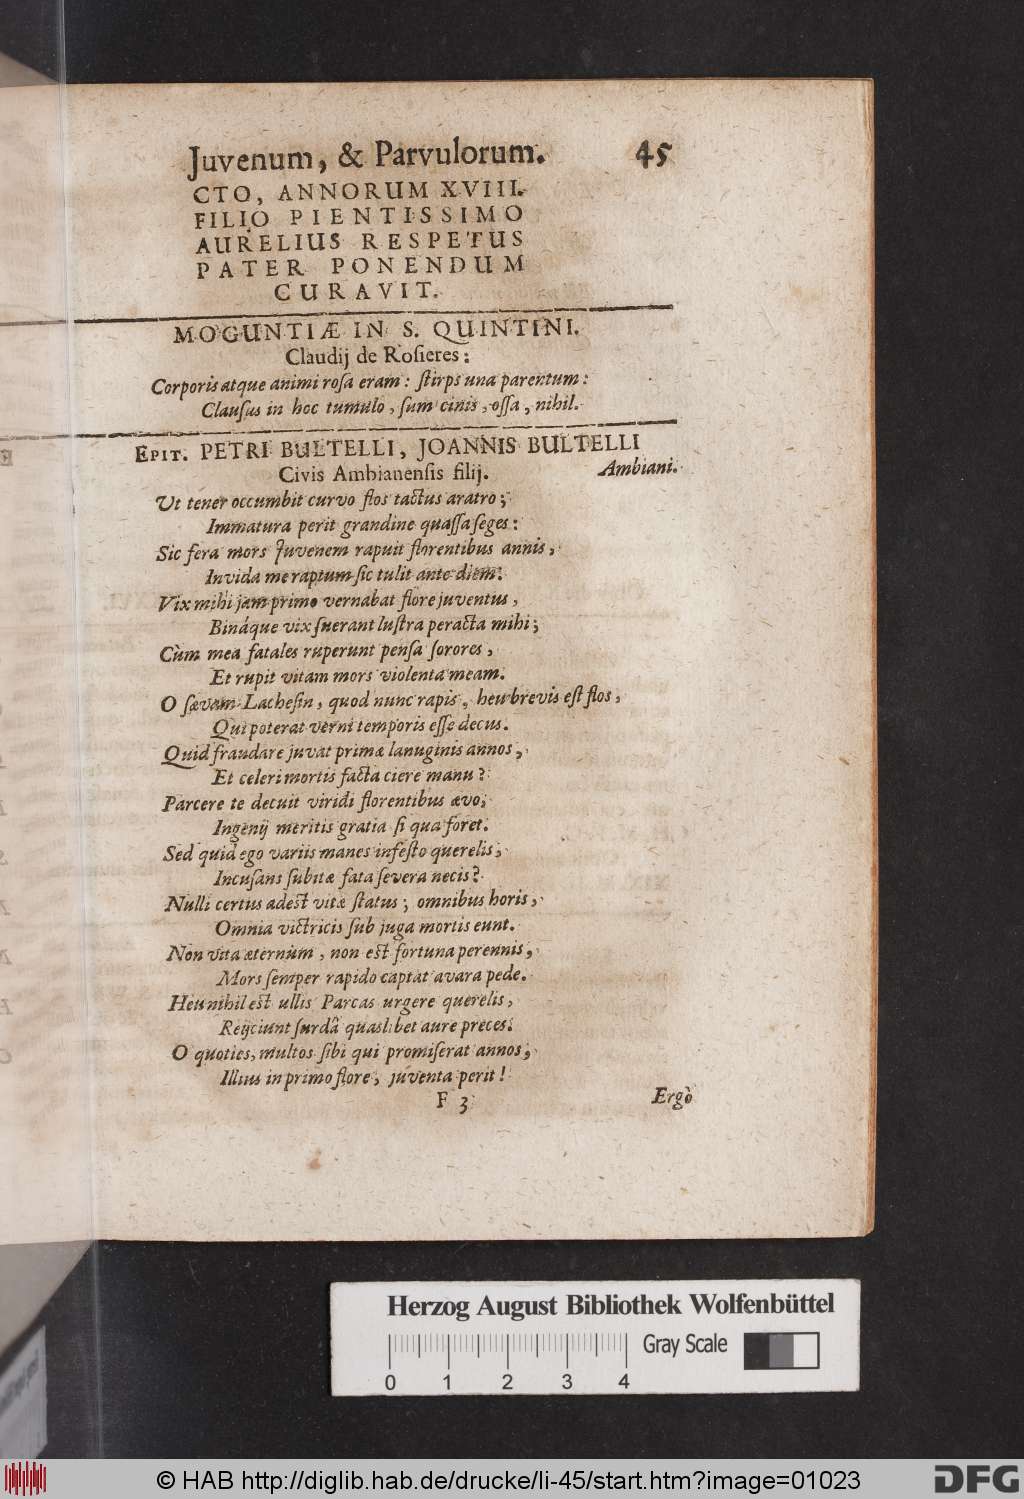 Juvenum, & Parvulorum. 45
CTO, ANNORUM XVIII.
FILIO PIENTISSIMO
AURELIUS RESPETUS
PATER PONENDUM
CURAVIT.
MOGUNTIÆ IN S. QUINTINI.
Claudij de Roſieres:
Corporis atque animi roſa eram: ſtirps una parentum:
Clauſus in hoc tumulo, ſum cinis, oſſa, nihil.
EPIT. PETRI BULTELLI, JOANNIS BULTELLI
Civis Ambianenſis filij. Ambiani.
Ut tener occumbit curvo flos tactus aratro;
Immatura perit grandine quaſſa ſeges:
Sic fera mors Juvenem rapuit florentibus annis,
Invida me raptum ſic tulit ante diem.
Vix mihi jam primo vernabat flore juventus,
Bináque vix fuerant luſtra peracta mihi;
Cùm mea fatales ruperunt penſa ſorores,
Et rupit vitam mors violenta meam.
O ſævam Lacheſin, quod nunc rapis, heu brevis eſt flos,
Qui poterat verni temporis eſſe decus.
Quid fraudare juvat primæ lanuginis annos,
Et celeri mortis facta ciere manu?
Parcere te decuit viridi florentibus ævo,
Ingenij meritis gratia ſi qua foret.
Sed quid ego variis manes infeſto querelis,
Incuſans ſubitæ fata ſevera necis?
Nulli certus adeſt vitæ ſtatus; omnibus horis,
Omnia victricis ſub juga mortis eunt.
Non vita æternùm, non eſt fortuna perennis,
Mors ſemper rapido captat avara pede.
Heu nihil eſt ullis Parcas urgere querelis,
Reijciunt ſurdâ quaslibet aure preces.
O quoties, multos ſibi qui promiſerat annos,
Illius in primo flore, juventa perit!
F 3 Ergò
Herzog August Bibliothek Wolfenbüttel
Gray Scale
0 1 2 3 4
© HAB http://diglib.hab.de/drucke/li-45/start.htm?image=01023
DFG